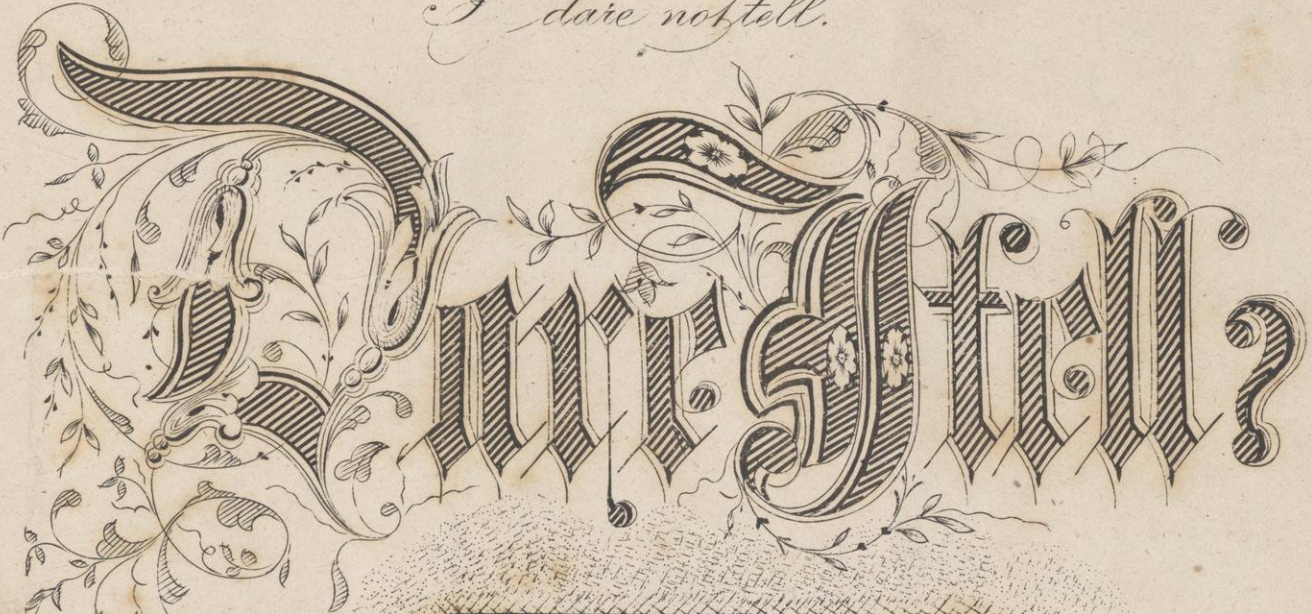 I dare not tell.
Dare I tell?